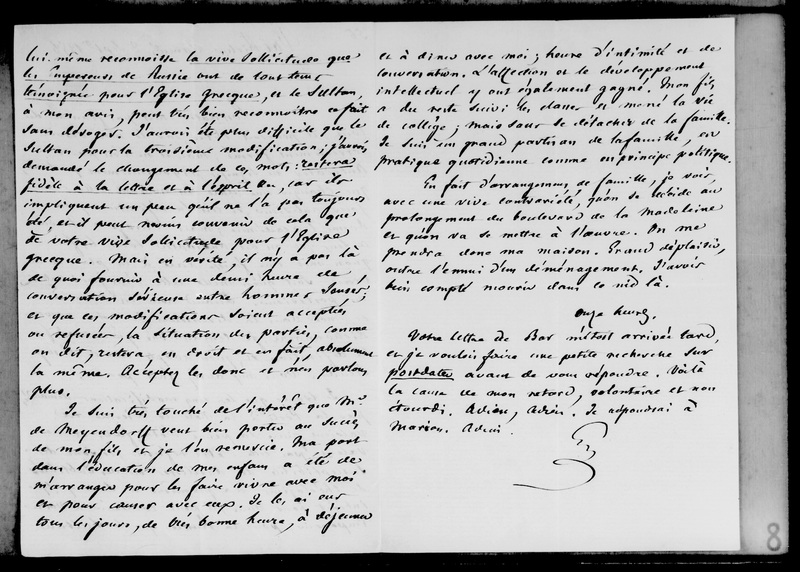 lui même reconnoisse la vive sollicitude que
les Empereurs de Russie ont de tout temps
témoignée pour l'Eglise grecque, et le Sultan,
à mon avis, peut très bien reconnoître ce fait
sans déroger. J'aurois été plus difficile que le
Sultan pour la troisième modification; j'aurois
demandé le changement de ces mots: restera
fidèle à la lettre et à l'esprit &c, car ils
impliquent un peu qu'il ne l'a pas toujours
été, et il peut moins convenir de cela que
de votre vive sollicitude pour l'Eglise
grecque. Mais en vérité, il n'y a pas là
de quoi fournir à une demi heure de
conversation sérieuse entre hommes sensés;
et que ces modifications soient acceptées
ou refusées, la situation des parties, comme
on dit, restera, en droit et en fait, absolument
la même. Acceptez les donc et n'en parlons
plus.
Je suis très touché de l'intérêt que Mr.
de Meyendorff veut bien porter au succès
de mon fils et je l'en remercie. Ma part
dans l'éducation de mes enfans a été de
m'arranger pour les faire vivre avec moi
et pour causer avec eux. Je les ai eus
tous les jours, de très bonne heure, à déjeuner
et à diner avec moi; heure d'intimité et de
conversation. L'affection et le développement
intellectuel y ont également gagné. Mon fils
a du reste suivi les classes et mené la vie
de collège; mais sans se détacher de la famille.
Je suis un grand partisan de la famille, en
pratique quotidienne comme en principe politique.
En fait d'arrangemens de famille, je vois,
avec une vive contrariété, qu'on se décide au
prolongement du boulevard de la Madeleine
et qu'on va se mettre à l'œuvre. On me
prendra donc ma maison. Grand déplaisir,
outre l'ennui d'un déménagement. J'avois
bien compté mourir dans ce nid là.
onze heures.
Votre lettre de Bar m'étoit arrivée tard,
et je voulois faire une petite recherche sur
postdater avant de vous répondre. Voilà
la cause de mon retard, volontaire et non
étourdi. Adieu, Adieu. Je répondrai à
Marion. Adieu.
8